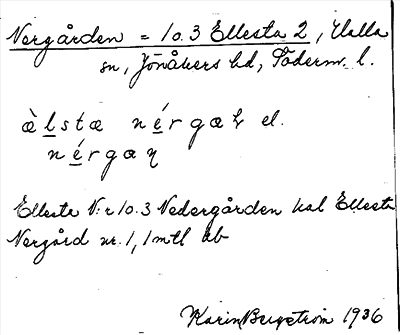 Norgården = 1 o. 3 Ellesta 2, Halla
sn, Jönåkers hd, Söderm. l.
æ̀lstæ nérgaɳ el.
nérgaɳ
Ellesta N:r 1 o. 3 Nedergården kal Ellesta
Norgård nr. 1, 1 mtl ab
Karin Bergström 1936